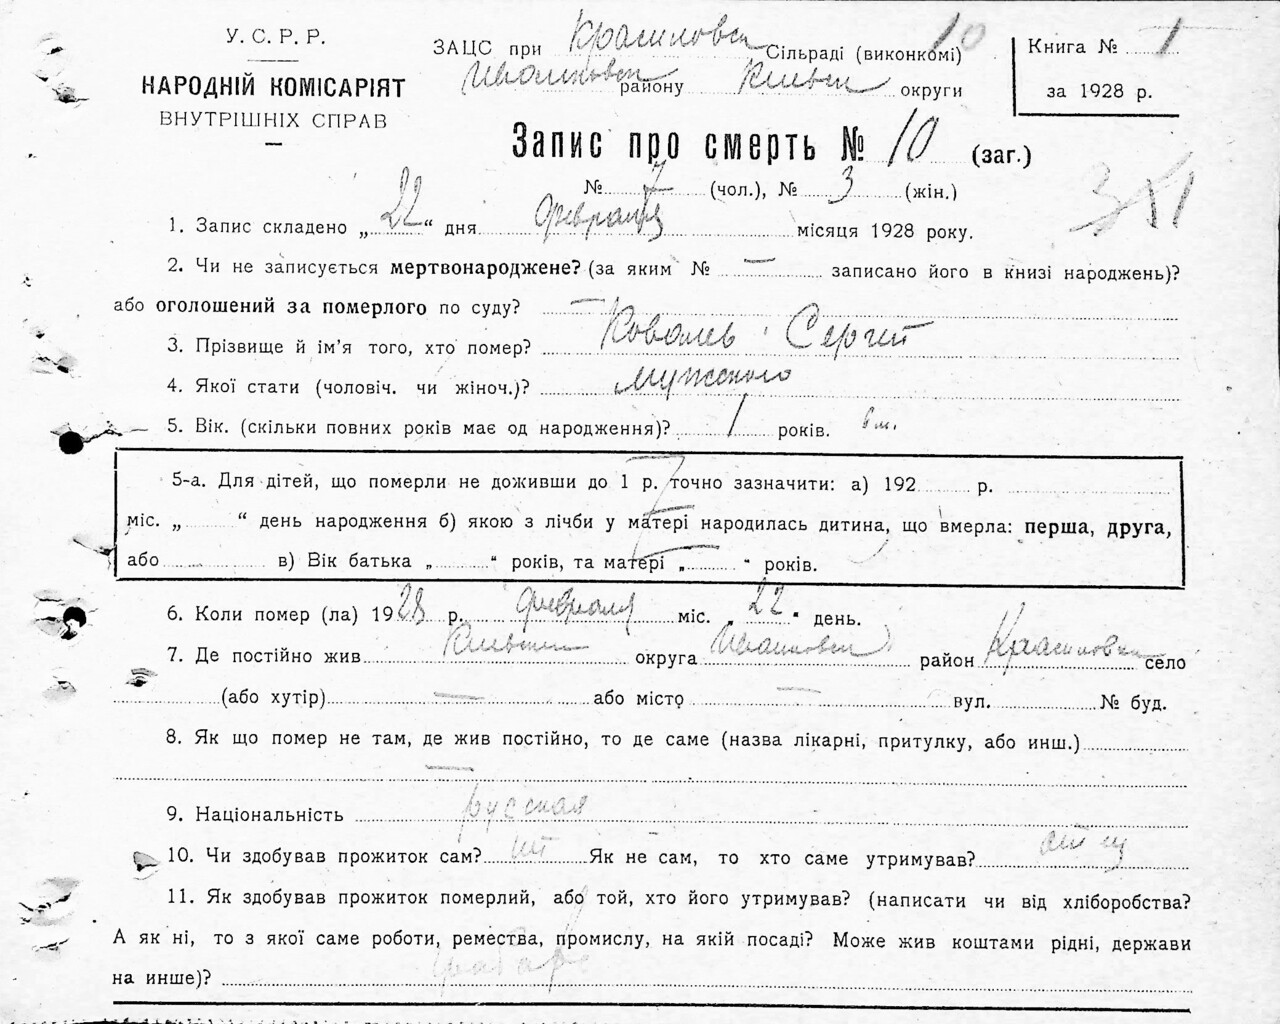 У. С. Р. Р.
НАРОДНІЙ КОМІСАРІЯТ
ВНУТРІШНІХ СПРАВ
ЗАЦС при Красиловск Сільраді (виконкомі) 10
Иванковск району Киевск округи
Книга № 1
за 1928 р.
Запис про смерть № 10 (заг.)
№ 7 (чол.), № 3 (жін.)
351
1. Запис складено „ 22 “ дня Февраля місяця 1928 року.
2. Чи не записується мертвонароджене? (за яким № — записано його в книзі народжень)?
або оголошений за померлого по суду? —
3. Прізвище й ім’я того, хто помер? Коваль Сергий
4. Якої стати (чоловіч. чи жіноч.)? мужского
5. Вік. (скільки повних років має од народження)? 1 років. 6 м.
5-а. Для дітей, що померли не доживши до 1 р. точно зазначити: а) 192 р.
міс. „ “ день народження б) якою з лічби у матері народилась дитина, що вмерла: перша, друга,
або в) Вік батька „ “ років, та матері „ “ років.
6. Коли помер (ла) 1928 р. февраля міс. „ 22 “ день.
7. Де постійно жив Киевск округа Иванковск район Красиловка село
(або хутір) — або місто — вул. № буд.
8. Як що помер не там, де жив постійно, то де саме (назва лікарні, притулку, або инш.)
—
9. Національність русская
10. Чи здобував прожиток сам? нет Як не сам, то хто саме утримував? отец
11. Як здобував прожиток померлий, або той, хто його утримував? (написати чи від хліборобства?
А як ні, то з якої саме роботи, ремества, промислу, на якій посаді? Може жив коштами рідні, держави
на инше)?